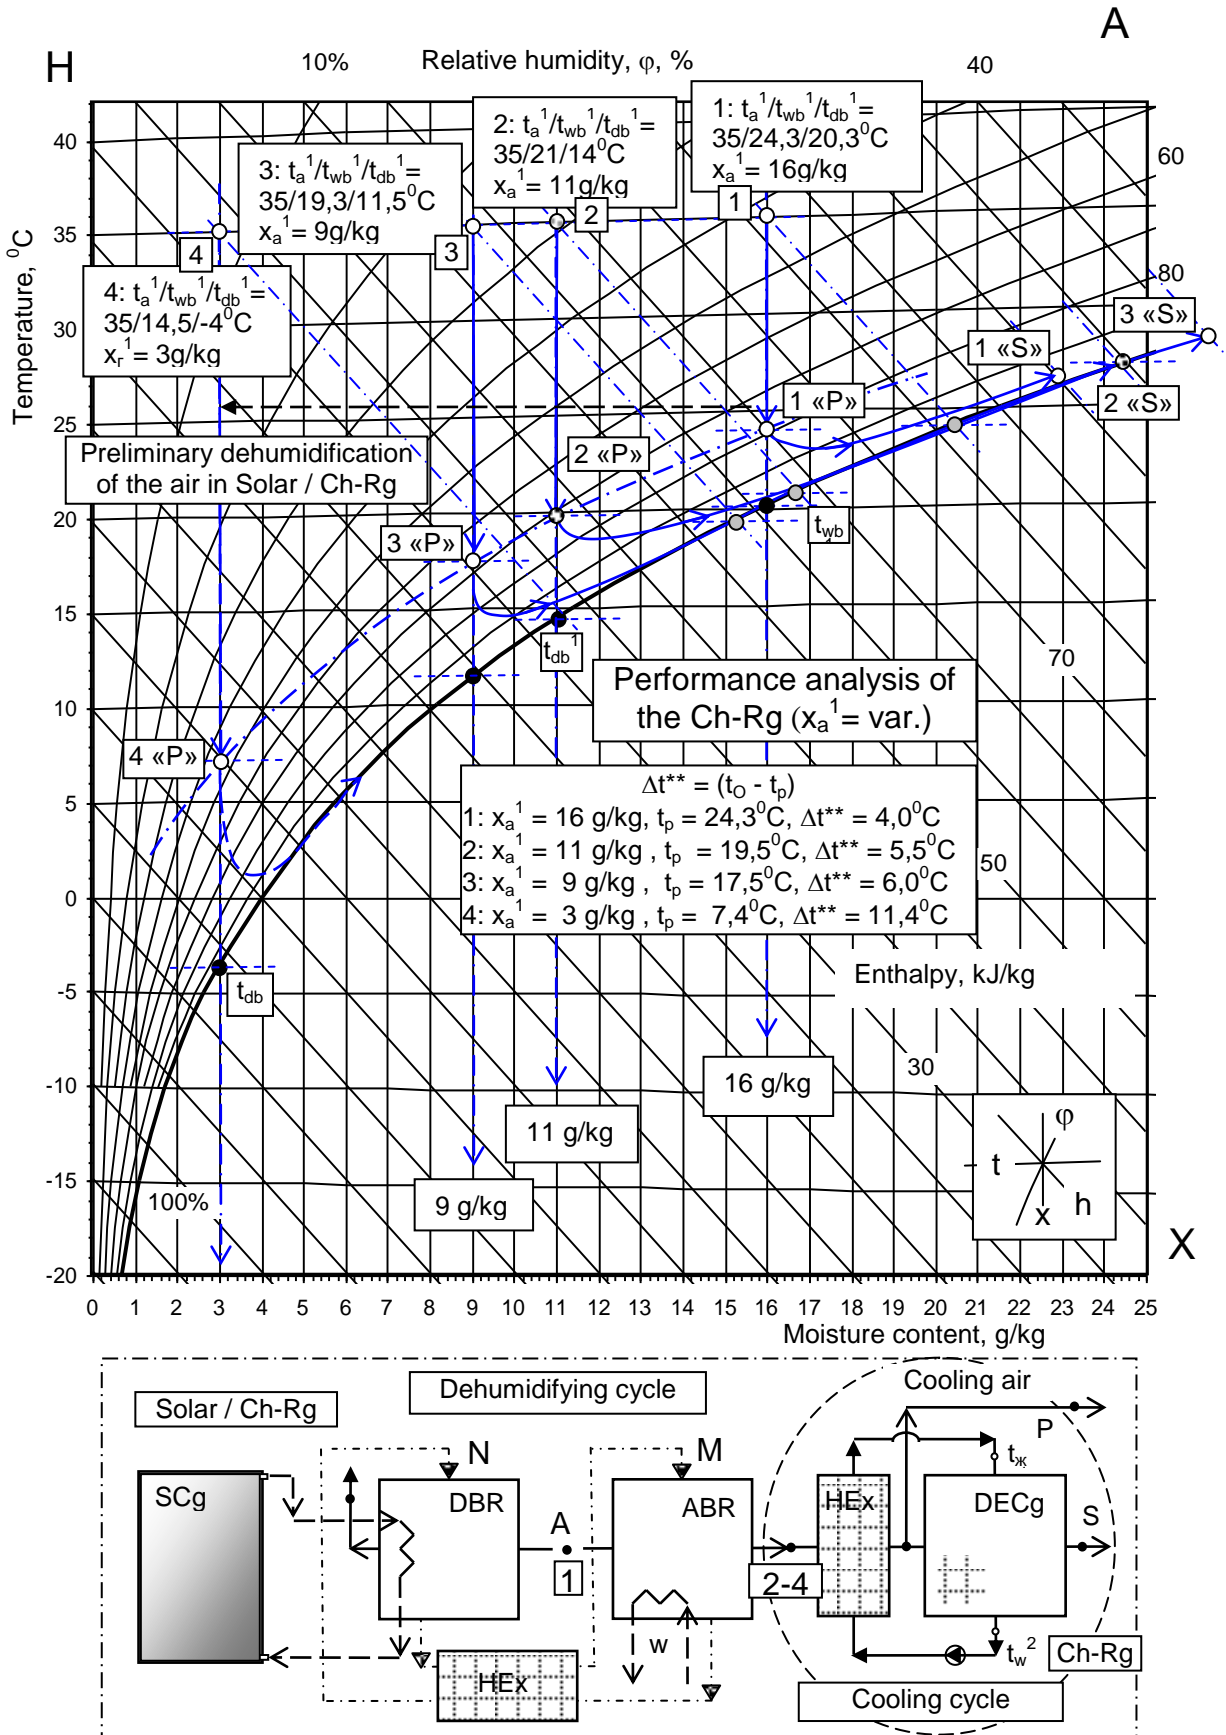 A
H
10%
Relative humidity, φ, %
40
1: tₐ¹/t_wb¹/t_db¹=
35/24,3/20,3⁰C
xₐ¹= 16g/kg
2: tₐ¹/t_wb¹/t_db¹=
35/21/14⁰C
xₐ¹= 11g/kg
3: tₐ¹/t_wb¹/t_db¹=
35/19,3/11,5⁰C
xₐ¹= 9g/kg
4: tₐ¹/t_wb¹/t_db¹=
35/14,5/-4⁰C
x_г¹= 3g/kg
60
80
1
2
3
4
Temperature, ⁰C
40
35
30
25
20
15
10
5
0
-5
-10
-15
-20
3 «S»
1 «S»
2 «S»
1 «P»
2 «P»
3 «P»
4 «P»
Preliminary dehumidification
of the air in Solar / Ch-Rg
t_wb
t_db¹
t_db
70
Performance analysis of
the Ch-Rg (xₐ¹= var.)
Δt** = (t_O - t_p)
1: xₐ¹ = 16 g/kg, t_p = 24,3⁰C, Δt** = 4,0⁰C
2: xₐ¹ = 11 g/kg , t_p = 19,5⁰C, Δt** = 5,5⁰C
3: xₐ¹ = 9 g/kg , t_p = 17,5⁰C, Δt** = 6,0⁰C
4: xₐ¹ = 3 g/kg , t_p = 7,4⁰C, Δt** = 11,4⁰C
50
Enthalpy, kJ/kg
30
16 g/kg
11 g/kg
9 g/kg
100%
φ
t
h
x
X
0 1 2 3 4 5 6 7 8 9 10 11 12 13 14 15 16 17 18 19 20 21 22 23 24 25
Moisture content, g/kg
Solar / Ch-Rg
Dehumidifying cycle
Cooling air
N
M
P
SCg
DBR
ABR
HEx
DECg
t_ж
A
1
S
2-4
w
HEx
t_w²
Ch-Rg
Cooling cycle